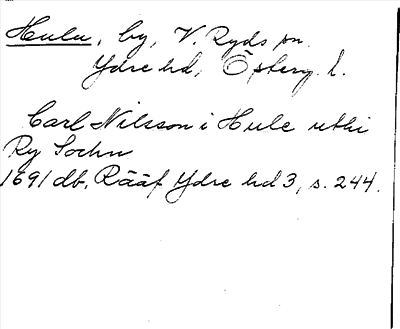 Hulu, by, V. Ryds sn.
Ydre hd, Östery. l.
Carl Nilsson i Hule uthi
Ry Sochn
1691 db, Rääf Ydre hd 3, s. 244.